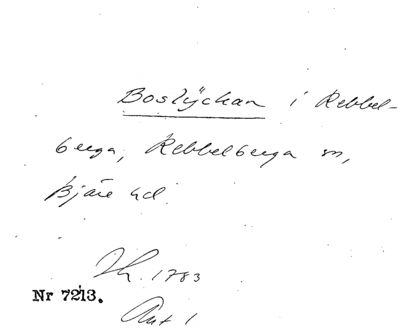 Boslyckan i Rebbel-
berga, Rebbelberga sn,
Bjäre hd.
1783
Nr 7213.
Akt 1